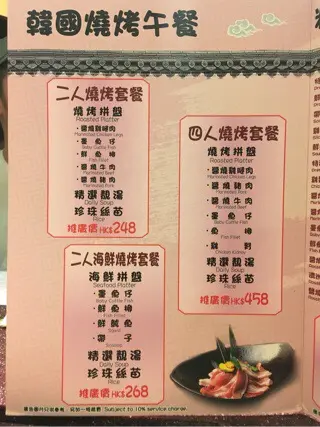 韓國燒烤午餐
二人燒烤套餐
燒烤拼盤
Roasted Platter
·醬燒雞腿肉
Marinated Chicken Legs
·墨魚仔
Baby Cuttle Fish
·魚柳
Fish Fillet
·醬燒牛肉
Marinated Beef
·醬燒豬肉
Marinated Pork
精選靚湯
Daily Soup
珍珠絲苗
Rice
推廣價HK$248
二人海鮮燒烤套餐
海鮮拼盤
Seafood Platter
·墨魚仔
Baby Cuttle Fish
·鮮魚柳
Fish Fillet
·鮮魷魚
Squid
·帶子
Scallop
精選靚湯
Daily Soup
珍珠絲苗
Rice
推廣價HK$268
四人燒烤套餐
燒烤拼盤
Roasted Platter
·醬燒雞腿肉
Marinated Chicken Legs
·醬燒豬肉
Marinated Pork
·醬燒牛肉
Marinated Beef
·墨魚仔
Baby Cuttle Fish
·魚柳
Fish Fillet
·雞腎
Chicken Kidney
精選靚湯
Daily Soup
珍珠絲苗
Rice
推廣價HK$458
Subject to 10% service charge